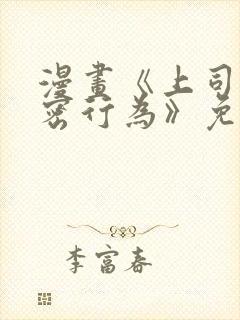 漫畫《上司
密行為》免
李富春